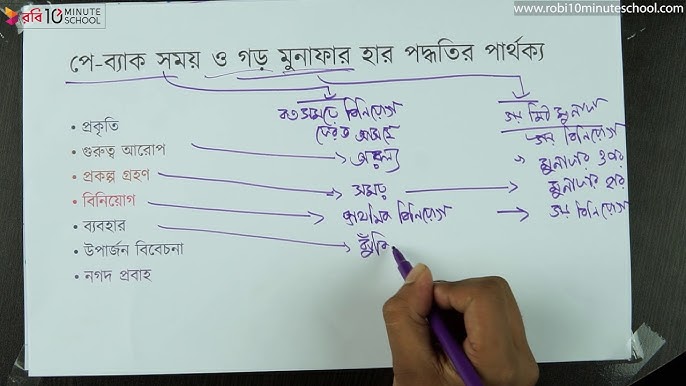 রবি 10 MINUTE SCHOOL
www.robi10minuteschool.com
পে-ব্যাক সময় ও গড় মুনাফার হার পদ্ধতির পার্থক্য
কত সময়ে বিনিয়োগ
ফেরত আসছে
গড় নিট মুনাফা
গড় বিনিয়োগ
• প্রকৃতি
• গুরুত্ব আরোপ
তারল্য
মুনাফার ওপর
• প্রকল্প গ্রহণ
সময়
মুনাফার হার
• বিনিয়োগ
প্রাথমিক বিনিয়োগ
গড় বিনিয়োগ
• ব্যবহার
ঝুঁকি
• উপার্জন বিবেচনা
• নগদ প্রবাহ